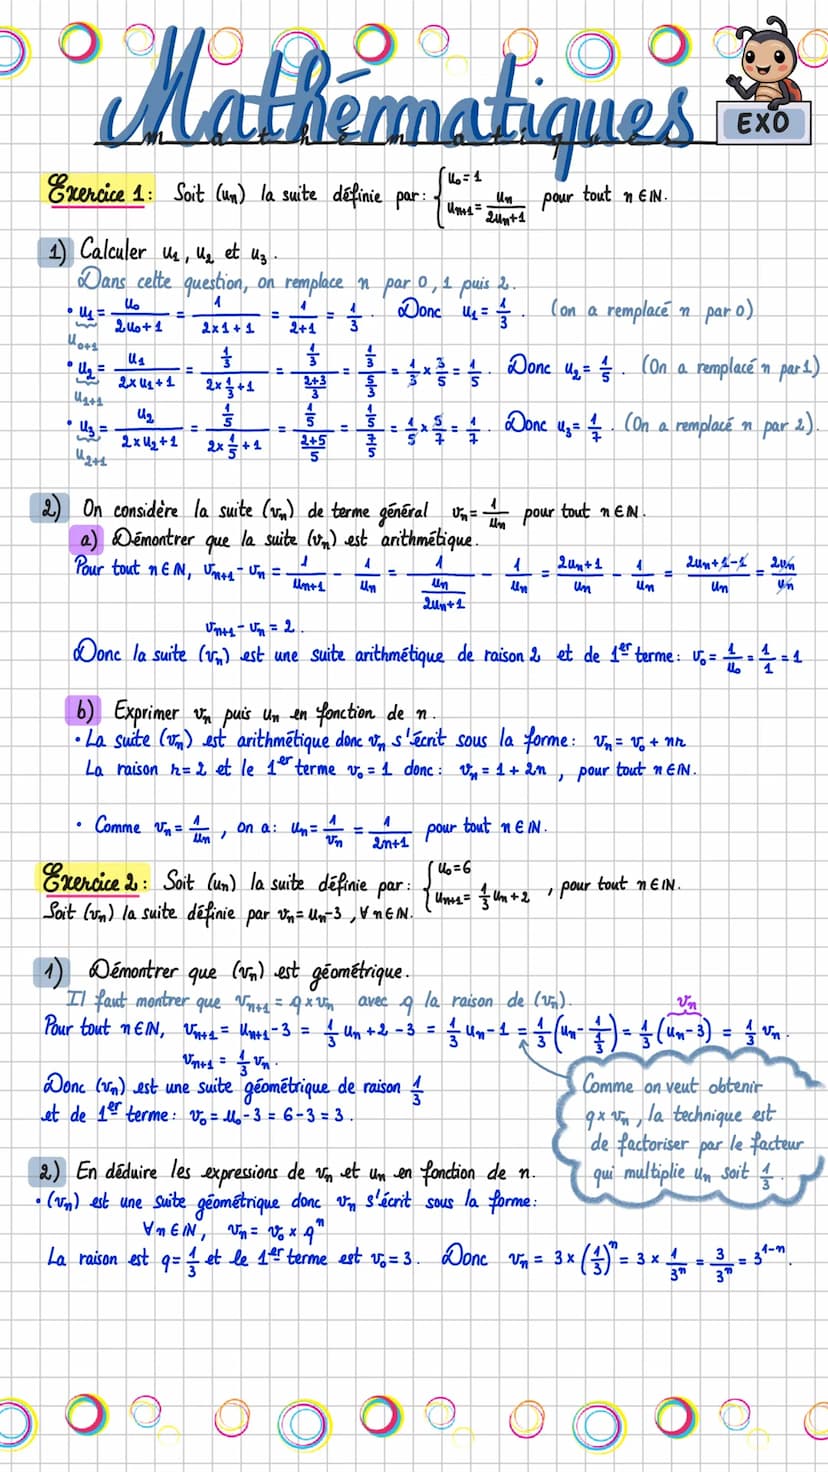 Mathématiques
mathématiques
EXO
Exercice 1 : Soit (uₙ) la suite définie par : { u₀ = 1 ; uₙ₊₁ = uₙ/(2uₙ+1) pour tout n ∈ ℕ.
1) Calculer u₁, u₂ et u₃.
Dans cette question, on remplace n par 0, 1 puis 2.
• u₁ = u₀/(2u₀+1) = 1/(2×1+1) = 1/(2+1) = 1/3. Donc u₁ = 1/3. (on a remplacé n par 0)
u₀₊₁
• u₂ = u₁/(2×u₁+1) = (1/3)/(2×1/3+1) = (1/3)/((2+3)/3) = (1/3)/(5/3) = 1/3 × 3/5 = 1/5. Donc u₂ = 1/5. (On a remplacé n par 1)
u₁₊₁
• u₃ = u₂/(2×u₂+1) = (1/5)/(2×1/5+1) = (1/5)/((2+5)/5) = (1/5)/(7/5) = 1/5 × 5/7 = 1/7. Donc u₃ = 1/7. (On a remplacé n par 2).
u₂₊₁
2) On considère la suite (vₙ) de terme général vₙ = 1/uₙ pour tout n ∈ ℕ.
a) Démontrer que la suite (vₙ) est arithmétique.
Pour tout n ∈ ℕ, vₙ₊₁ - vₙ = 1/uₙ₊₁ - 1/uₙ = 1/(uₙ/(2uₙ+1)) - 1/uₙ = (2uₙ+1)/uₙ - 1/uₙ = (2uₙ+1-1)/uₙ = 2uₙ/uₙ
vₙ₊₁ - vₙ = 2.
Donc la suite (vₙ) est une suite arithmétique de raison 2 et de 1er terme : v₀ = 1/u₀ = 1/1 = 1
b) Exprimer vₙ puis uₙ en fonction de n.
• La suite (vₙ) est arithmétique donc vₙ s'écrit sous la forme : vₙ = v₀ + nr
La raison r = 2 et le 1er terme v₀ = 1 donc : vₙ = 1 + 2n, pour tout n ∈ ℕ.
• Comme vₙ = 1/uₙ, on a : uₙ = 1/vₙ = 1/(2n+1) pour tout n ∈ ℕ.
Exercice 2 : Soit (uₙ) la suite définie par : { u₀ = 6 ; uₙ₊₁ = 1/3 uₙ + 2, pour tout n ∈ ℕ.
Soit (vₙ) la suite définie par vₙ = uₙ-3, ∀ n ∈ ℕ.
1) Démontrer que (vₙ) est géométrique.
Il faut montrer que vₙ₊₁ = q × vₙ avec q la raison de (vₙ).
vₙ
Pour tout n ∈ ℕ, vₙ₊₁ = uₙ₊₁ - 3 = 1/3 uₙ + 2 - 3 = 1/3 uₙ - 1 = 1/3 (uₙ - 1/(1/3)) = 1/3 (uₙ - 3) = 1/3 vₙ.
vₙ₊₁ = 1/3 vₙ.
Donc (vₙ) est une suite géométrique de raison 1/3
et de 1er terme : v₀ = u₀ - 3 = 6 - 3 = 3.
Comme on veut obtenir
q × vₙ, la technique est
de factoriser par le facteur
qui multiplie uₙ soit 1/3.
2) En déduire les expressions de vₙ et uₙ en fonction de n.
• (vₙ) est une suite géométrique donc vₙ s'écrit sous la forme :
∀ n ∈ ℕ, vₙ = v₀ × qⁿ
La raison est q = 1/3 et le 1er terme est v₀ = 3. Donc vₙ = 3 × (1/3)ⁿ = 3 × 1/3ⁿ = 3/3ⁿ = 3¹⁻ⁿ.